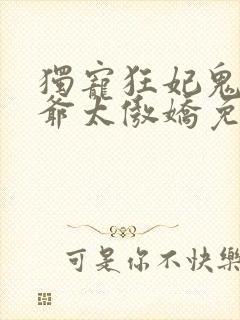 獨寵狂妃鬼
爺太傲嬌免
可是你不快樂